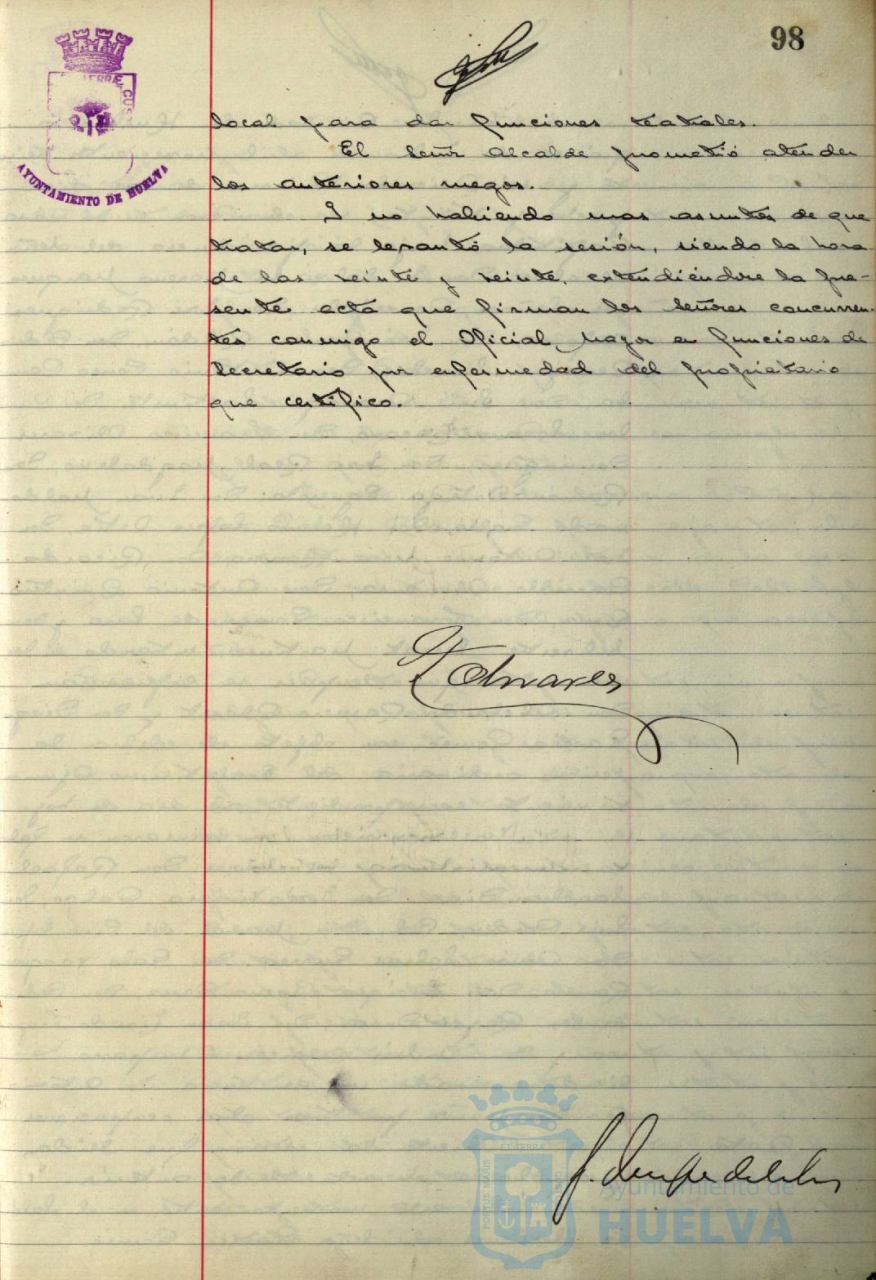 98
AYUNTAMIENTO DE HUELVA
local para dar funciones teatrales.
El Señor Alcalde prometió atender
los anteriores ruegos.
Y no habiendo mas asuntos de que
tratar, se levantó la sesión, siendo la hora
de las veinte y veinte, extendiéndose la pre-
sente acta que firman los Señores concurren-
tes conmigo el Oficial Mayor en funciones de
Secretario por enfermedad del propietario
que certifico.
Ayuntamiento de
HUELVA